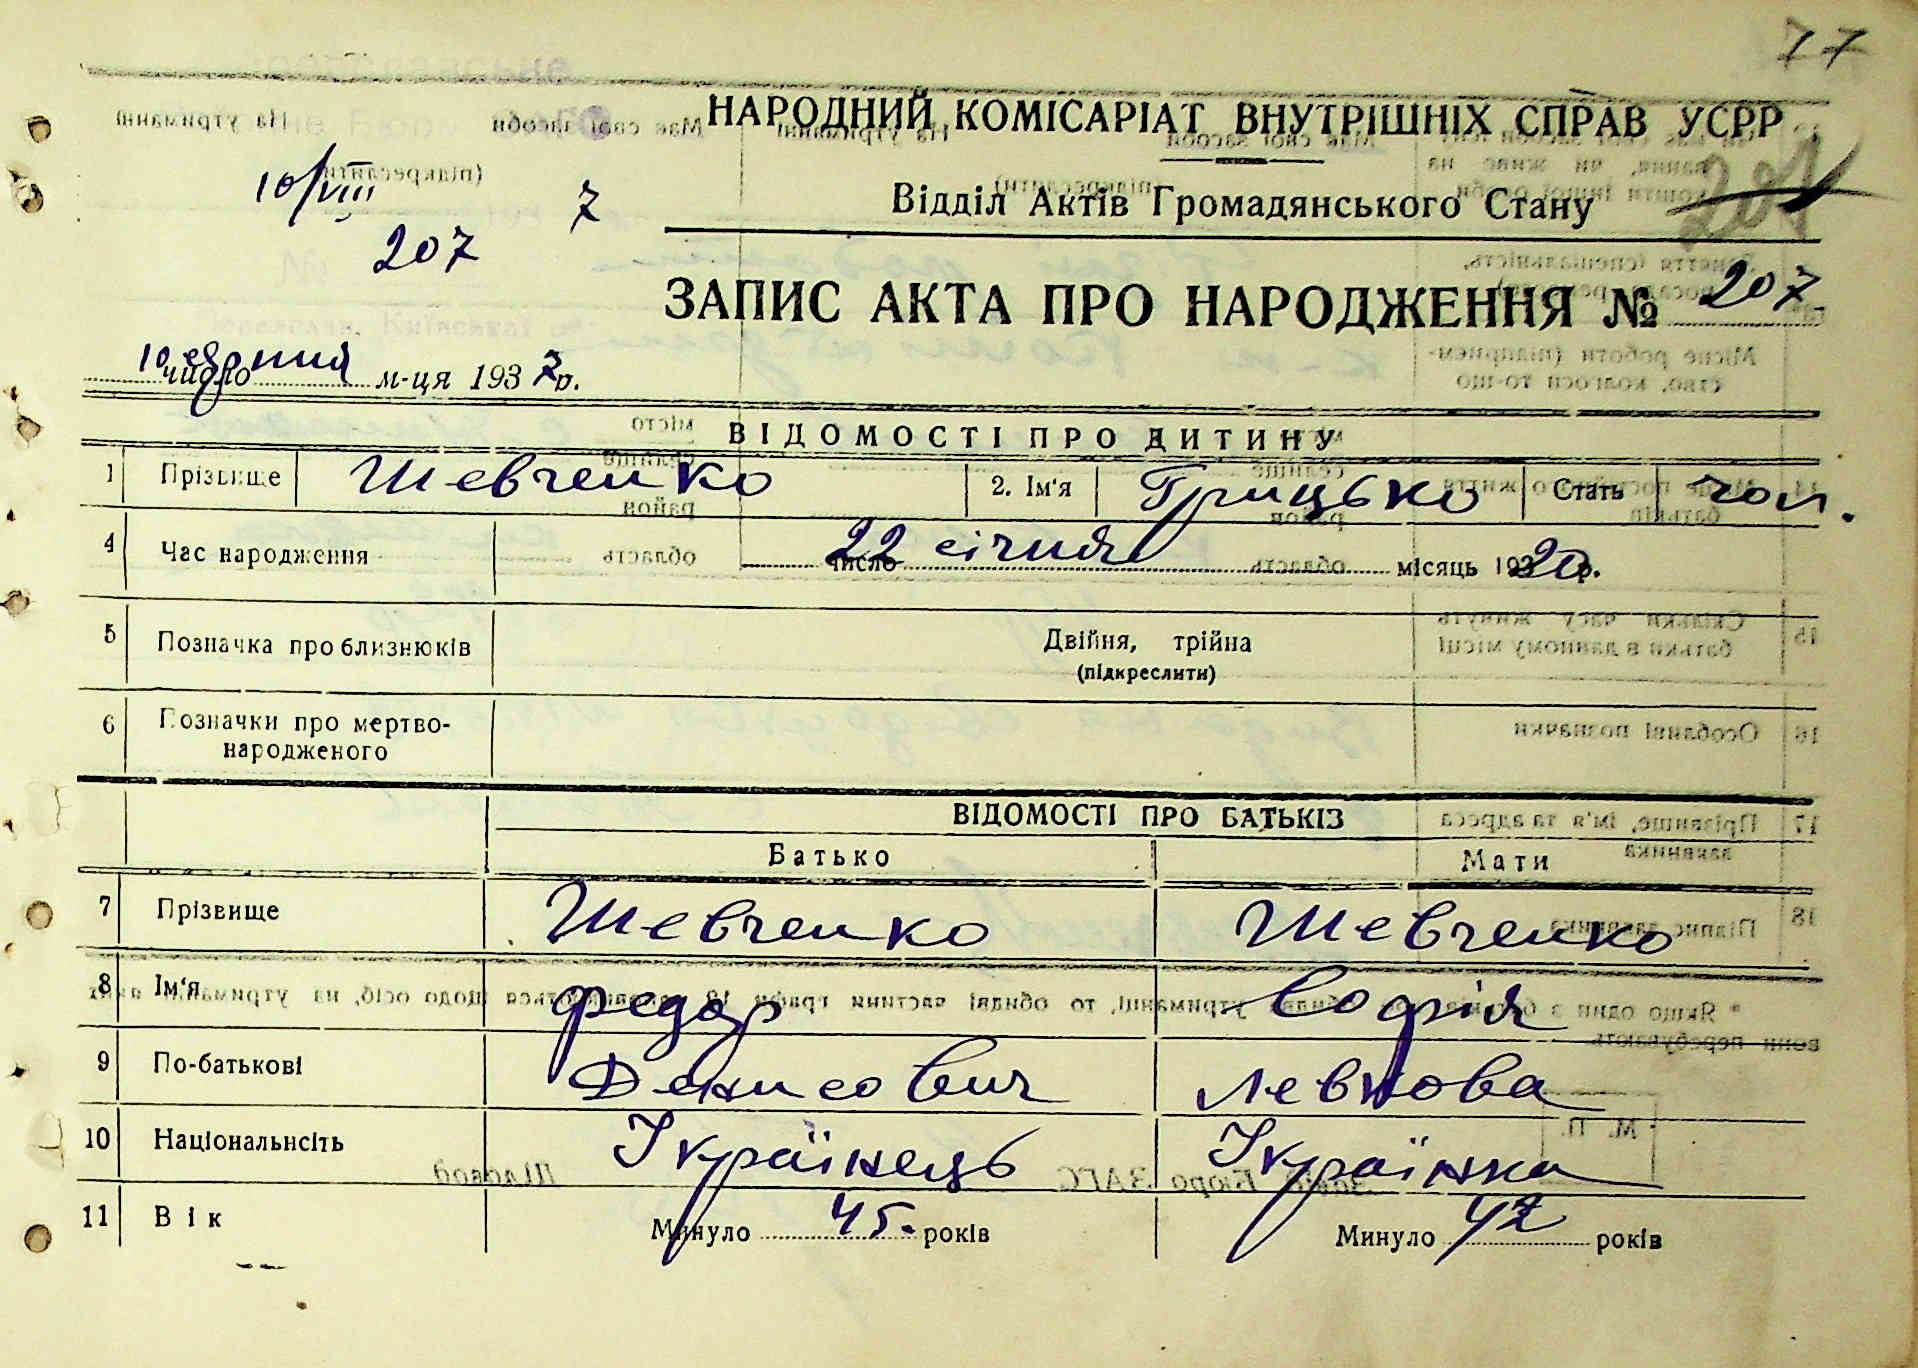 77
НАРОДНИЙ КОМІСАРІАТ ВНУТРІШНІХ СПРАВ УСРР
10/VIII 7
207
Відділ Актів Громадянського Стану
201
ЗАПИС АКТА ПРО НАРОДЖЕННЯ № 207
10 число серпня м-ця 1937 р.
ВІДОМОСТІ ПРО ДИТИНУ
1 Прізвище Шевченко 2. Ім'я Грицько Стать чол.
4 Час народження 22 число січня місяць 1920 р.
5 Позначка про близнюків Двійня, трійна
(підкреслити)
6 Позначки про мертво-
народженого
ВІДОМОСТІ ПРО БАТЬКІВ
Батько Мати
7 Прізвище Шевченко Шевченко
8 Ім'я Федор Софія
9 По-батькові Денисович Левкова
10 Національнсіть Українець Українка
11 Вік Минуло 45. років Минуло 42 років